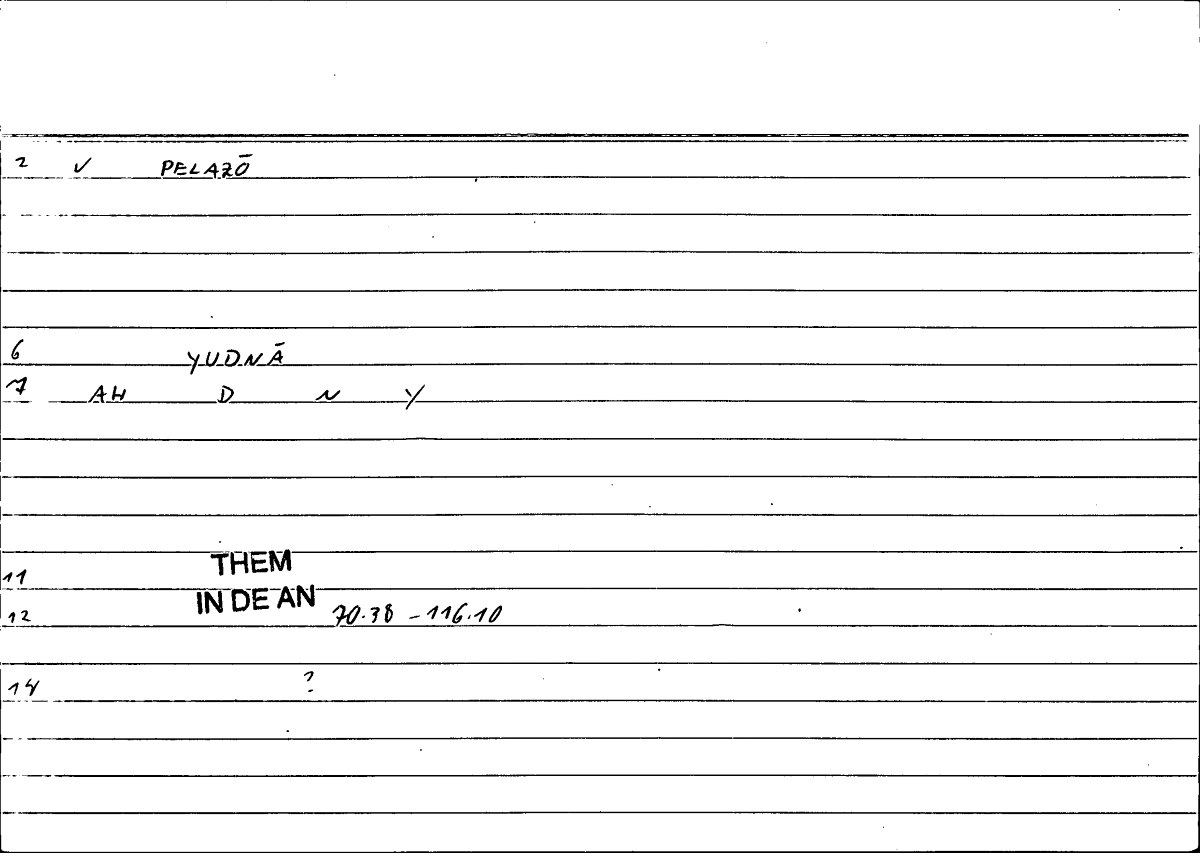 2 V PELAZŌ
6 YUDNĀ
7 AH D N Y
11 THEM
12 IN DE AN 70.38 - 116.10
14 ?